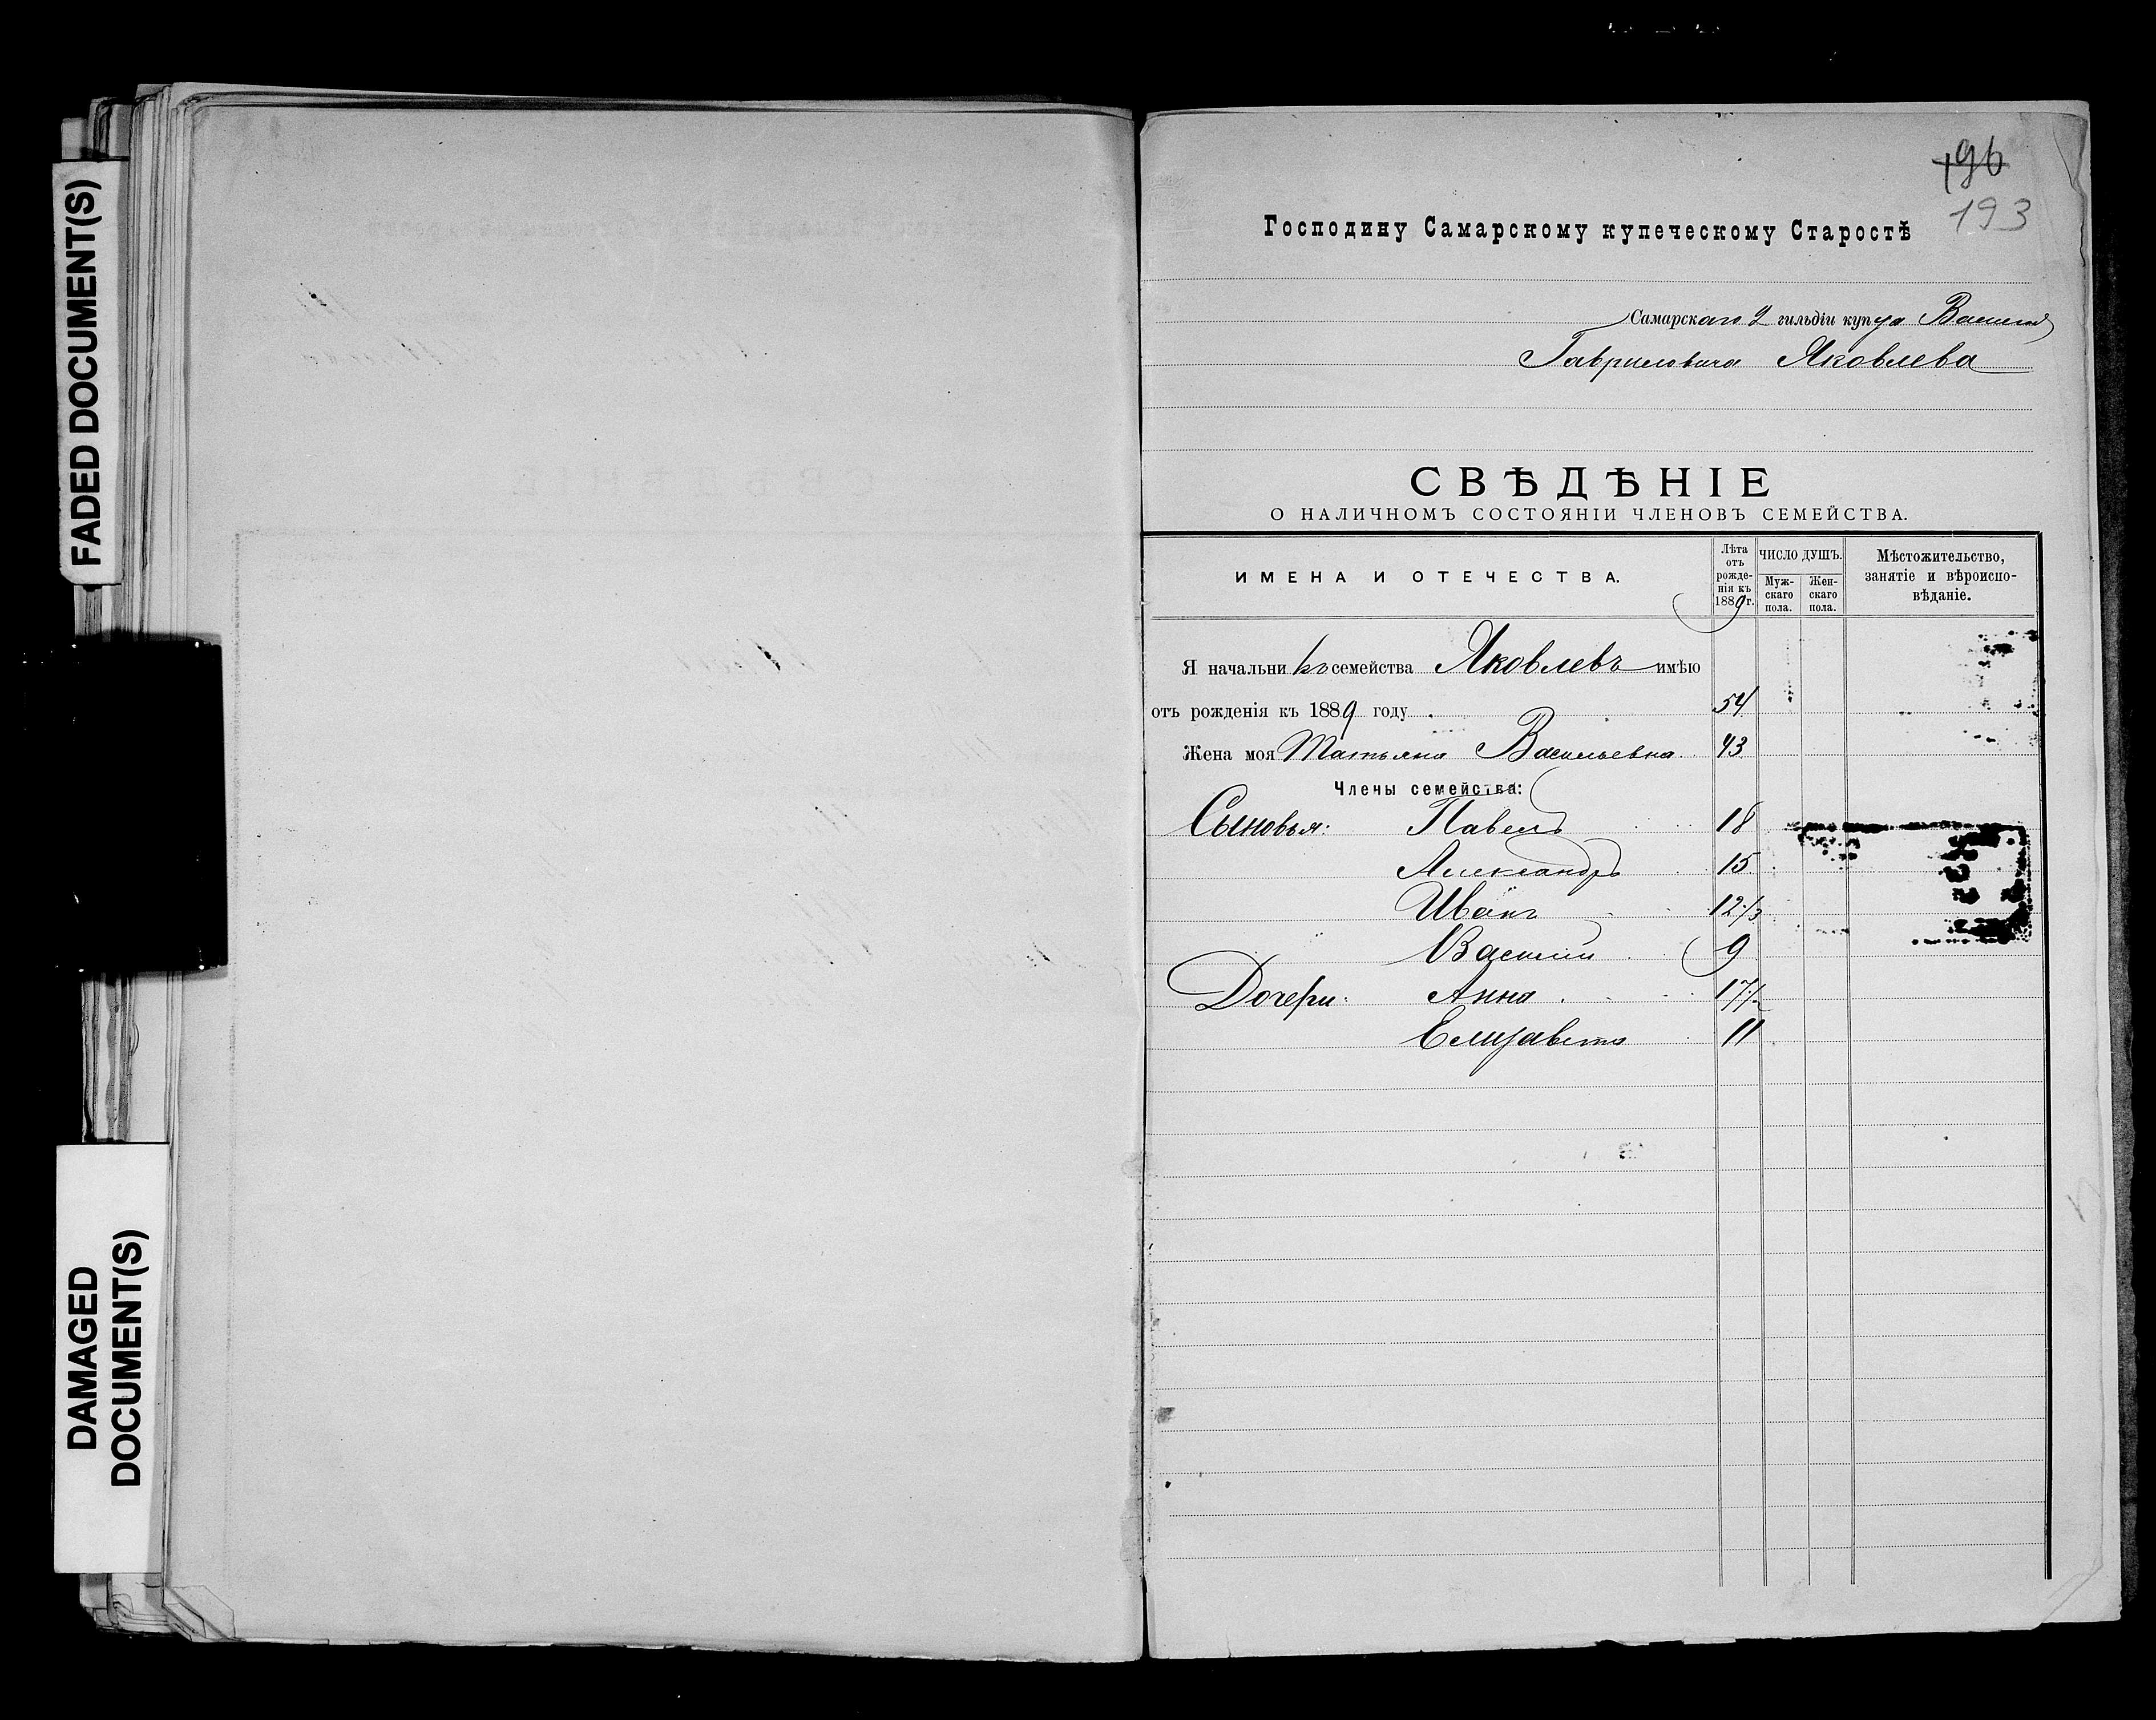 FADED DOCUMENT(S)
DAMAGED
DOCUMENT(S)
196
193
Господину Самарскому купеческому Старостѣ
Самарскаго 2 гильдіи купца Василія
Гавриловича Яковлева
СВѢДѢНІЕ
О НАЛИЧНОМЪ СОСТОЯНІИ ЧЛЕНОВЪ СЕМЕЙСТВА.
ИМЕНА И ОТЕЧЕСТВА.
Лѣта
отъ
рожде-
нія къ
1889 г.
ЧИСЛО ДУШЪ.
Муж-
скаго
пола.
Жен-
скаго
пола.
Мѣстожительство,
занятіе и вѣроиспо-
вѣданіе.
Я начальникъ семейства Яковлевъ имѣю
отъ рожденія къ 1889 году 54
Жена моя Татьяна Васильевна 43
Члены семейства:
Сыновья: Павелъ 18
Александръ 15
Иванъ 12 1/3
Василий 9
Дочери: Анна 17 1/2
Елизавета 11